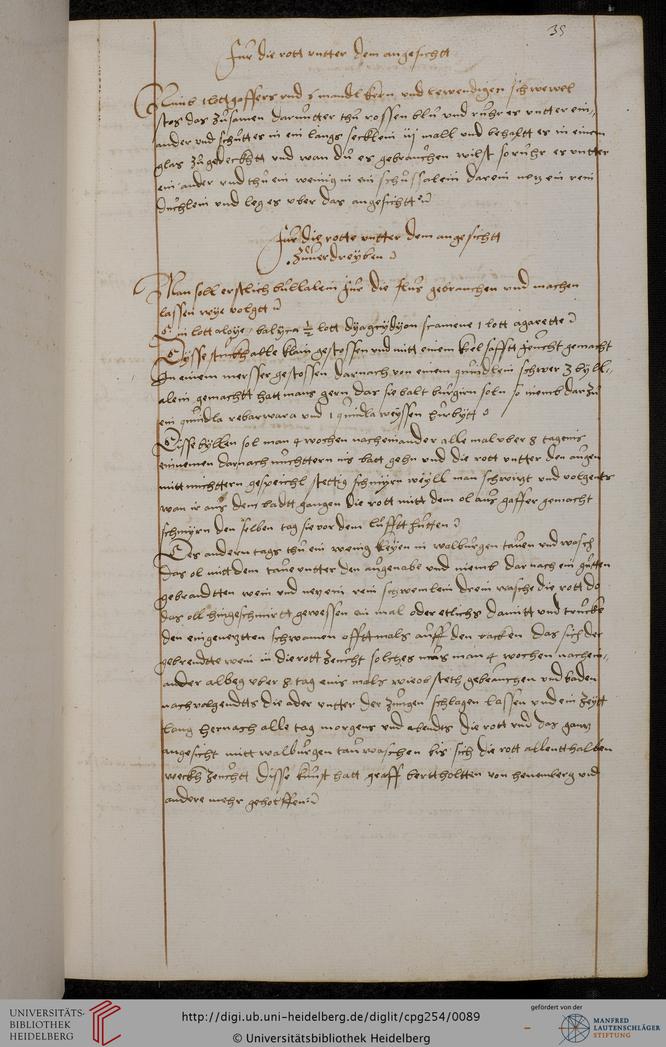 35
Für die rott vntter dem angesichtt
Nimb 1 lott goffers vnd 5 mandl kern vnd lewendigen schwewel
stos das zusamen daruntter thu rossen blu vnd rurs es vntter ein-
ander vnd schutt es in ein langs secklein iij mall vnd behaltt es in einem
glas zugedeckhtt vnd wan du es gebrauchen wilst so ruhr es vntter
ein ander vnd thu ein wennig in ein schussalein darein netz ein rein
duchlein vnd leg es vber das angesichtt
Für die rotte vntter dem angesichtt
zuuerdreyben
Man soll erstlich bullalein für die flus gebrauchen vnd machen
lassen wye volgtt
lott aloye lott dyagrydyon 1 lott agarette
Dysse stückh alle klain gestossen vnd mitt einem safftt feucht gemacht
In einem mersser gestossen darnach von einem quindlein schwer 3 byll-
alein gemachtt hatt mans gern das sie balt soln so niemb darzu
ein quindla rebarwara vnd 1 quindla weyssen
Disse byllen sol man 4 wochen nacheinander alle mal vber 8 tag
einnemen darnach nuchttern ins batt gehn vnd die rott vntter den augen
mitt nuchttern speichl stettig schmyrn weyll man schwitzt vnd volgents
wan ir aus dem badtt gangen die rott mitt dem ol aus gaffer gemacht
schmyrn den selben tag sie vor dem lufftt hütten
Des andern tags thu ein wenig kleyen in walburgen tauen vnd wasch
das ol mitt dem taue vntter den augen abe vnd niemb darnach ein gutten
gebrandtten wein vnd netz ein rein schwemlein drein wasche die rott do
das oll hingeschmirtt gewessen ein mal oder etlichs damitt vnd truckh
den eingenetztten schwamen offttmals auff den backen das sich der
gebrendtte wein in die rott zeucht solches mus man 4 wochen nachein-
ander albeg vber 8 tag eins mals wie ob steth gebrauchen vnd baden
nachvolgendtts die ader vntter der zungen schlagen lassen vnd ein zeytt
lang hernach alle tag morgens vnd abendts die rott vnd das gantz
angesicht mitt walburgen tau waschen bis sich die rott allentthalben
weckh zeuchtt Disse kunst hatt graff bertthollten von henenberg vnd
andere mehr geholffen
UNIVERSITÄTS-
BIBLIOTHEK
HEIDELBERG
http://digi.ub.uni-heidelberg.de/diglit/cpg254/0089
© Universitätsbibliothek Heidelberg
gefördert von der
MANFRED
LAUTENSCHLÄGER
STIFTUNG